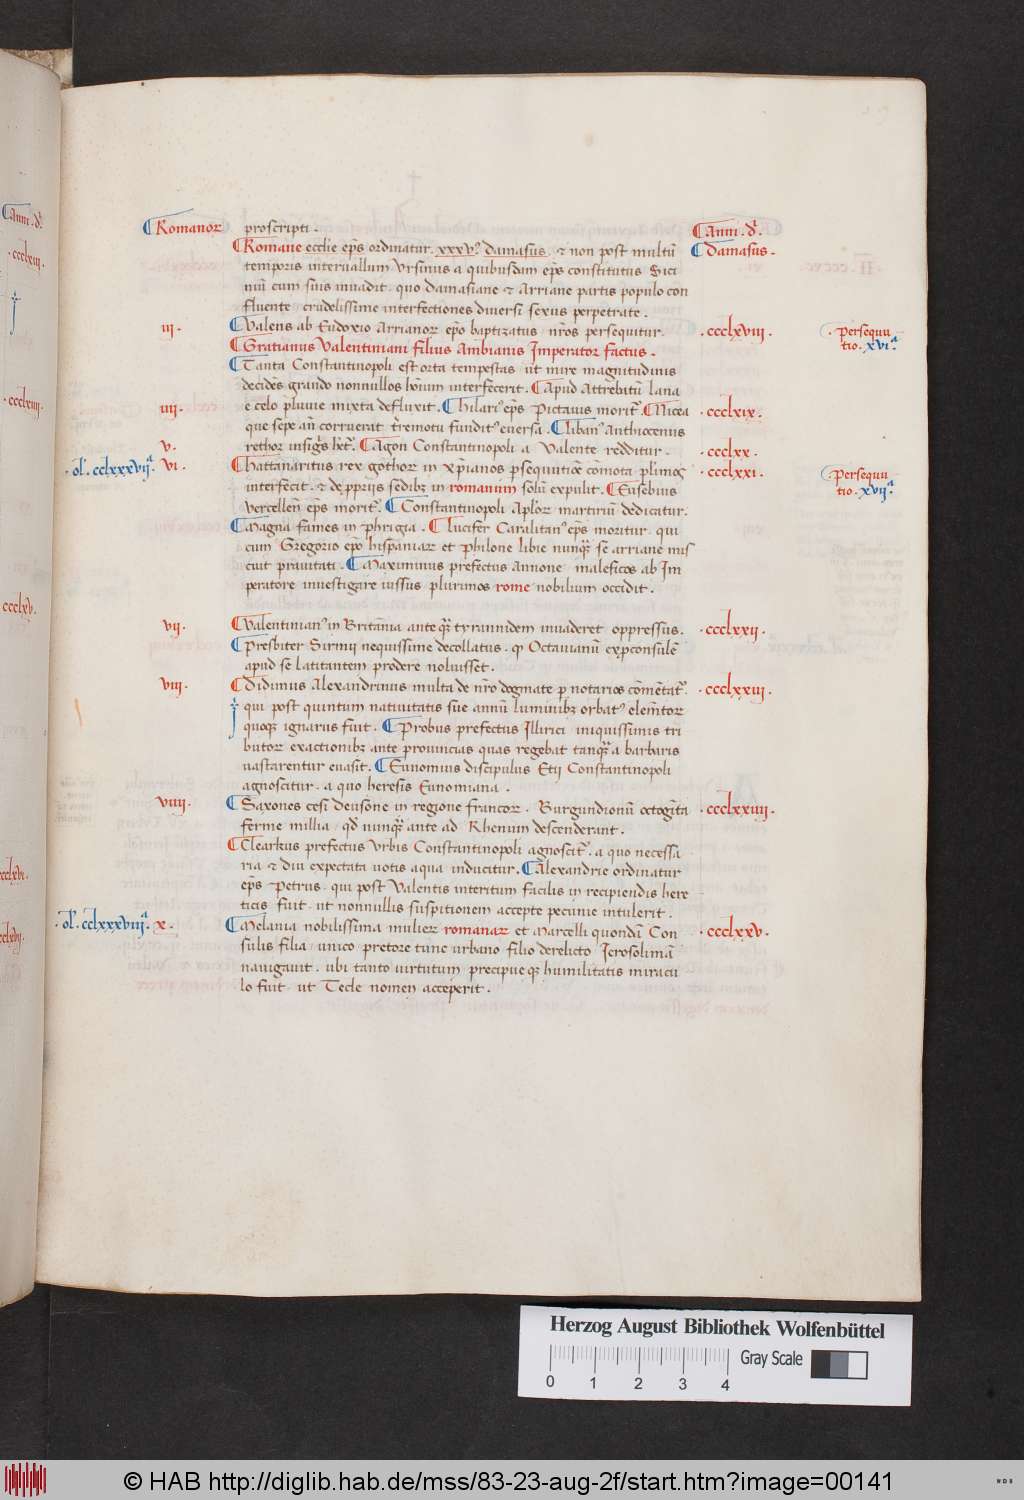 Romanoꝝ proscripti . Anni . dī.
Romane ecclīe ep̄s ordinatur . xxxvꝰ. damasus . ⁊ non post multū Damasus .
temporis interuallum Vrsinus a quibusdam ep̄s constitutus Sici
niū cum suis inuadit . quo damasiane ⁊ Arriane partis populo con
fluente crudelissime interfectiones diuersi sexus perpetrate .
iii . Valens ab Eudoxio Arrianoꝝ ep̄o baptizatus nr̄os persequitur . .ccclxviii . persequu
tio . xviª.
Gratianus Valentiniani filius Ambianis Imperator factus .
Tanta Constantinopoli est orta tempestas ut mire magnitudinis
decidēs grando nonnullos hōium interfecerit . Apud Attrebatū lana
iiii . e celo pluuie mixta defluxit . Hilariꝰ ep̄s Pictauis moritꝛ . Nicea . ccclxix .
que sepe an̄ corruerat tr̄emotu funditꝰ euersa . Libanꝰ Anthiocenus
v . rethor insignis hr̄. Agon Constantinopoli a Valente redditur . . ccclxx .
. ol'. cclxxxviiª. vi . Hattanaritus rex gothoꝝ in xp̄ianos ꝑsequutiōe cōmota plīmos . ccclxxi . persequu
interfecit . ⁊ de ꝓpriis sedibꝫ in romanum solū expulit . Eusebius tio . xviiª.
Vercellen̄ ep̄s moritꝛ . Constantinopoli Apl'oꝝ martiriū dedicatur .
Magna fames in phrigia . Lucifer Caralitanꝰ ep̄s moritur . qui
cum Gregorio ep̄o hispaniaꝝ et Philone libie nunqꝫ se arriane mis
cuit prauitati . Maximinus prefectus Annone maleficos ab Im
peratore inuestigare iussus plurimos rome nobilium occidit .
vii . Valentinianꝰ in Britania ante qꝫ tyrannidem inuaderet oppressus . . ccclxxii .
Presbiter Sirmii nequissime decollatus . ꝙ Octauianū exproconsulē
apud se latitantem prodere noluisset .
viii . Didimus Alexandrinus multa de nr̄o dogmate ꝑ notarios cōmētatꝛ . . ccclxxiii .
qui post quintum natiuitatis sue annū luminibꝫ orbatꝰ elemētoꝝ
quoqꝫ ignarus fuit . Probus prefectus Illirici iniquissimis tri
butoꝝ exactionibꝫ ante prouincias quas regebat tanqꝫ a barbaris
uastarentur euasit . Eunomius discipulus Etii Constantinopoli
agnoscitur . a quo heresis Eunomiana .
viiii . Saxones cesi Deusone in regione francoꝝ . Burgundionū octogīta . ccclxxiiii .
ferme millia qd̄ nunqꝫ ante ad Rhenum descenderant .
Clearkus prefectus Vrbis Constantinopoli agnoscitꝛ . a quo necessa
ria ⁊ diu expectata uotis aqua inducitur . Alexandrie ordinatur
ep̄s Petrus . qui post Valentis interitum facilis in recipiendis here
ticis fuit . ut nonnullis suspitionem accepte pecunie intulerit .
. ol'. cclxxxviiiª. x . Melania nobilissima mulieꝝ romanaꝝ et Marcelli quondā Con . ccclxxv .
sulis filia . unico pretore tunc urbano filio derelicto Ierosolimā
nauigauit . ubi tanto uirtutum precipue qꝫ humilitatis miracu
lo fuit . ut Tecle nomen acceperit .
Anni . dī.
. ccclxiii .
. ccclxiiii .
ccclxv .
ccclxvi .
Herzog August Bibliothek Wolfenbüttel
Gray Scale
0 1 2 3 4
© HAB http://diglib.hab.de/mss/83-23-aug-2f/start.htm?image=00141